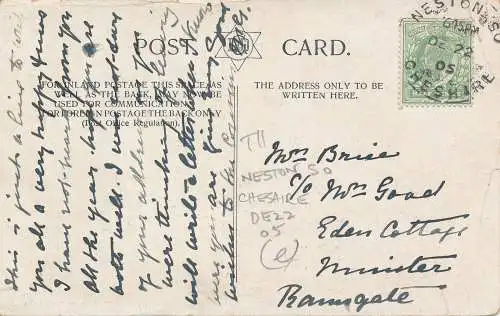 POST CARD.
FOR INLAND POSTAGE THIS SPACE AS
WELL AS THE BACK, MAY NOW BE
USED FOR COMMUNICATION.
FOR FOREIGN POSTAGE THE BACK ONLY
(Post Office Regulation).
THE ADDRESS ONLY TO BE
WRITTEN HERE.
NESTON S.O
DE 22
05
CHESHIRE
This is just a line to wish
you all a very happy Xmas
I have not heard from you
all the year hope you are
both well. I went most day
of your address
were thinking
will write a letter
were you are
wishes to the
Mrs Brise
C/o Mrs Goad
Eden Cottage
Minster
Ramsgate
T11
NESTON SO
CHESHIRE
DE22
05
(e)